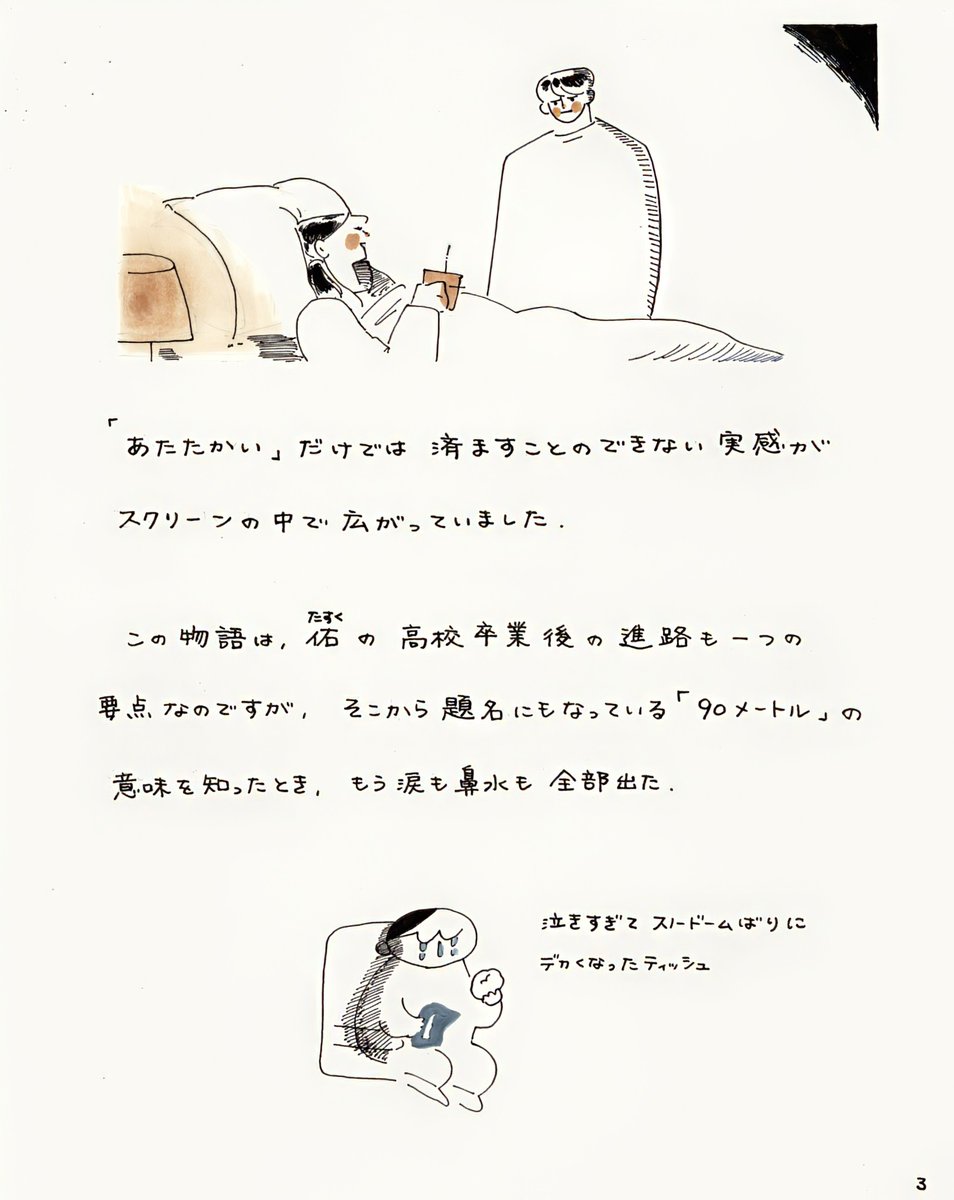 「あたたかい」だけでは 済ますことのできない 実感が
スクリーンの中で 広がっていました.
この物語は, 佑の 高校卒業後の進路も一つの
たすく
要点なのですが, そこから題名にもなっている「90メートル」の
意味を知ったとき, もう涙も鼻水も 全部出た.
泣きすぎて スノードームばりに
デカくなったティッシュ
3